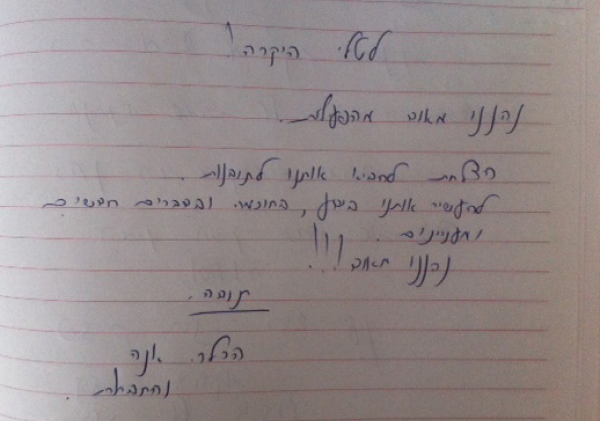 לטלי היקרה!
נהננו מאוד מהפעילות.
הצלחת להביא אותנו לתובנות.
להעשיר אותנו בידע, בחוכמה ובדברים חדשים
ומעניינים.
נהננו מאוד!!!
תודה.
אנה
והחברות.